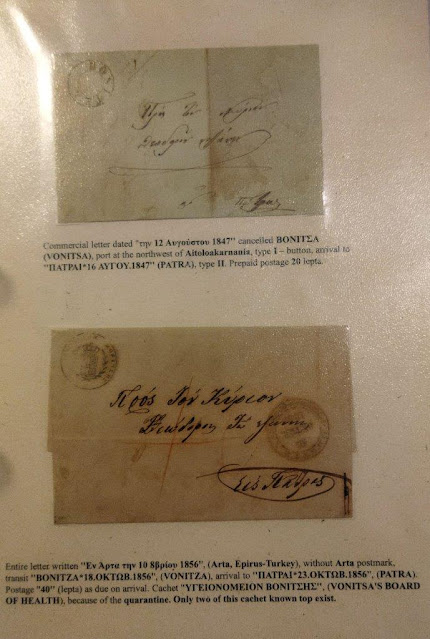 Commercial letter dated "την 12 Αυγούστου 1847" cancelled ΒΟΝΙΤΣΑ
(VONITSA), port at the northwest of Aitoloakarnania, type I – button, arrival to
"ΠΑΤΡΑΙ*16 ΑΥΓΟΥ.1847" (PATRA), type II. Prepaid postage 20 lepta.
Πρός Τον Κύριον
Εις Πάτρας
Entire letter written "Εν Άρτα την 10 8βρίου 1856", (Arta, Epirus-Turkey), without Arta postmark,
transit "ΒΟΝΙΤΖΑ*18.ΟΚΤΩΒ.1856", (VONITZA), arrival to "ΠΑΤΡΑΙ*23.ΟΚΤΩΒ.1856", (PATRA).
Postage "40" (lepta) as due on arrival. Cachet "ΥΓΕΙΟΝΟΜΕΙΟΝ ΒΟΝΙΤΣΗΣ", (VONITSA'S BOARD
OF HEALTH), because of the quarantine. Only two of this cachet known top exist.